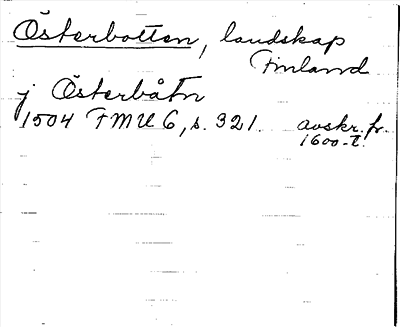 Österbotten, landskap
Finland
j Österbåtn
1504 FMU 6, s. 321. avskr. fr.
1600-t.